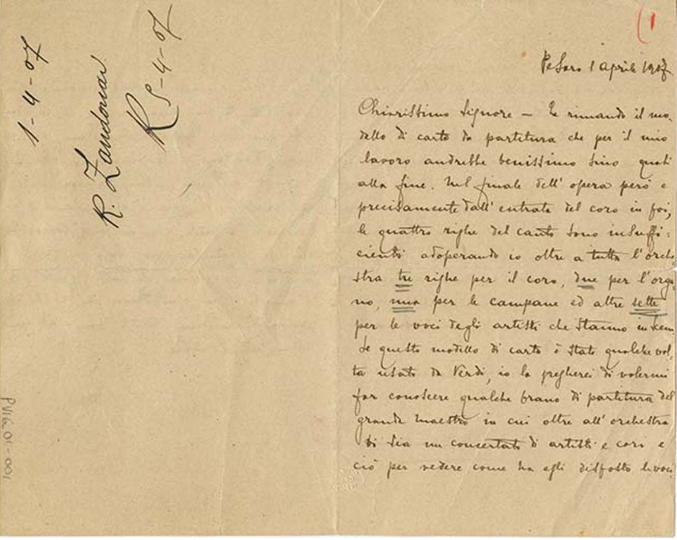 1-4-07
R. Zandonai
R 5-4-07
PVIG.01-001
(1
Pesaro 1 aprile 1907
Chiarissimo Signore — Le rimando il mo-
dello di carta da partitura che per il mio
lavoro andrebbe benissimo sino quasi
alla fine. Nel finale dell'opera però e
precisamente dall'entrata del coro in poi,
le quattro righe del canto sono insuffi-
cienti adoperando io oltre a tutta l'orche-
stra tre righe per il coro, due per l'orga-
no, una per le campane ed altre sette
per le voci degli artisti che stanno insiem.
Se questo modello di carta è stato qualche vol-
ta usato da Verdi, io la pregherei di volermi
far conoscere qualche brano di partitura del
grande maestro in cui oltre all'orchestra
vi sia un concertato di artisti e cori e
ciò per vedere come ha egli disposto le voci